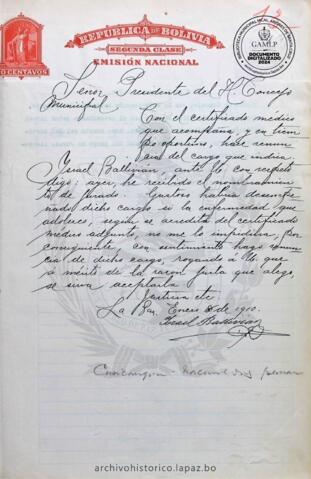 REPÚBLICA DE BOLIVIA
SEGUNDA CLASE
EMISIÓN NACIONAL
CENTAVOS
GAMLP
DOCUMENTO
DIGITALIZADO
2024
Señor Presidente del H. Concejo
Municipal.
Con el certificado médico
que acompaña, y en tiem
po oportuno, hace renun
cia del cargo que indica.
Israel Ballivián, ante Ud. con respeto
digo: ayer, he recibido el nombramien
to de Jurado. Gustoso habría desempe
ñado dicho cargo si la enfermedad que
adolezco, según se acredita del certificado
médico adjunto, no me lo impidiera; por
consiguiente, con sentimiento hago renun
cia de dicho cargo, rogando á U. que
á mérito de la razon justa que alego
se sirva aceptarla
Justicia etc.
La Paz, Enero 8 de 1910.
Israel Ballivián
archivohistorico.lapaz.bo